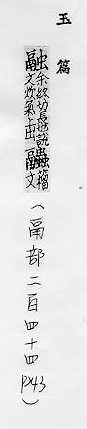 玉篇
融余終切長也說文炊氣上出𧖓籀文
(鬲部二百四十四 P43)